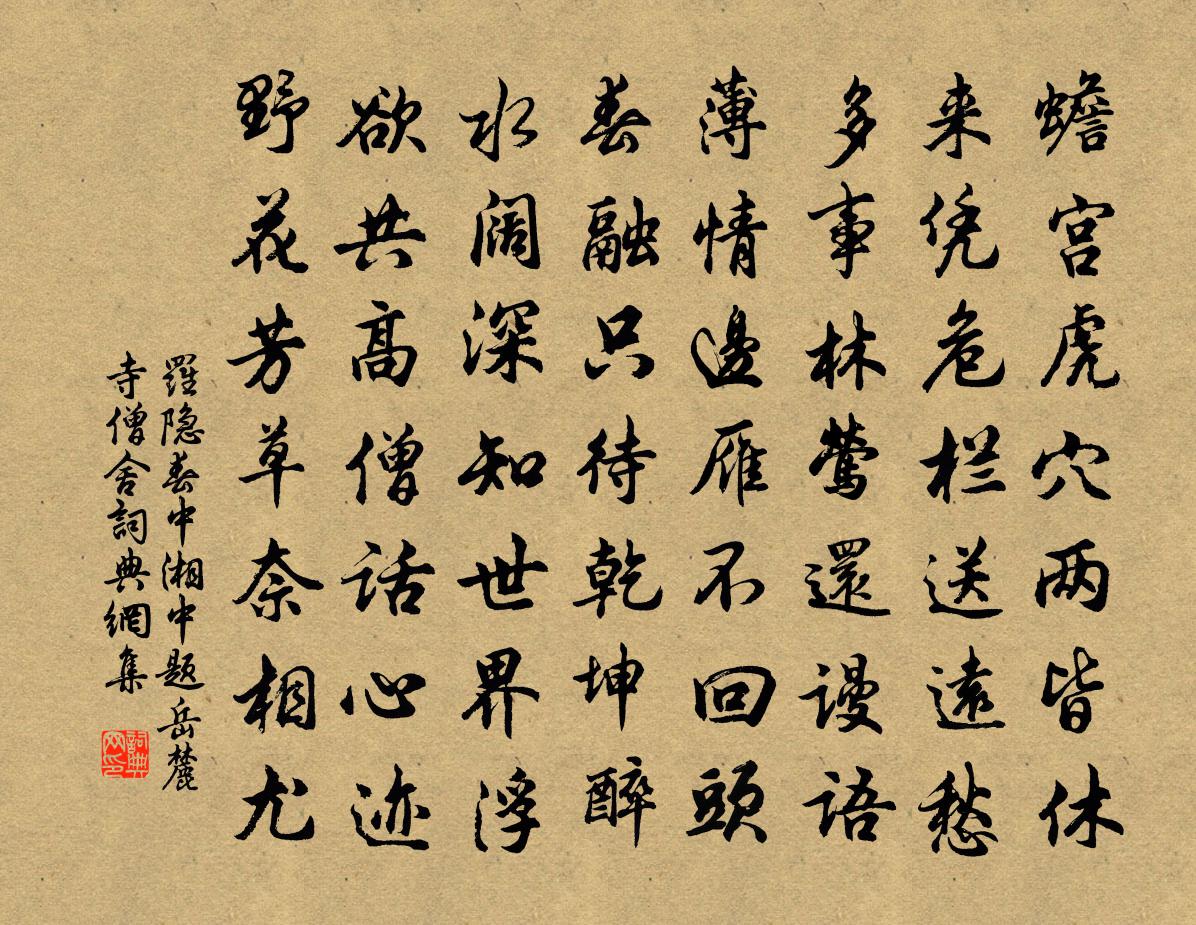 蟾宫虎穴两皆休
来凭危栏送遠愁
多事林莺還謾語
薄情邊雁不回頭
春融只待乾坤醉
水阔深知世界浮
欲共高僧話心迹
野花芳草奈相尤
羅隐春中湘中题岳麓
寺僧舍詞典網集
詞典网印